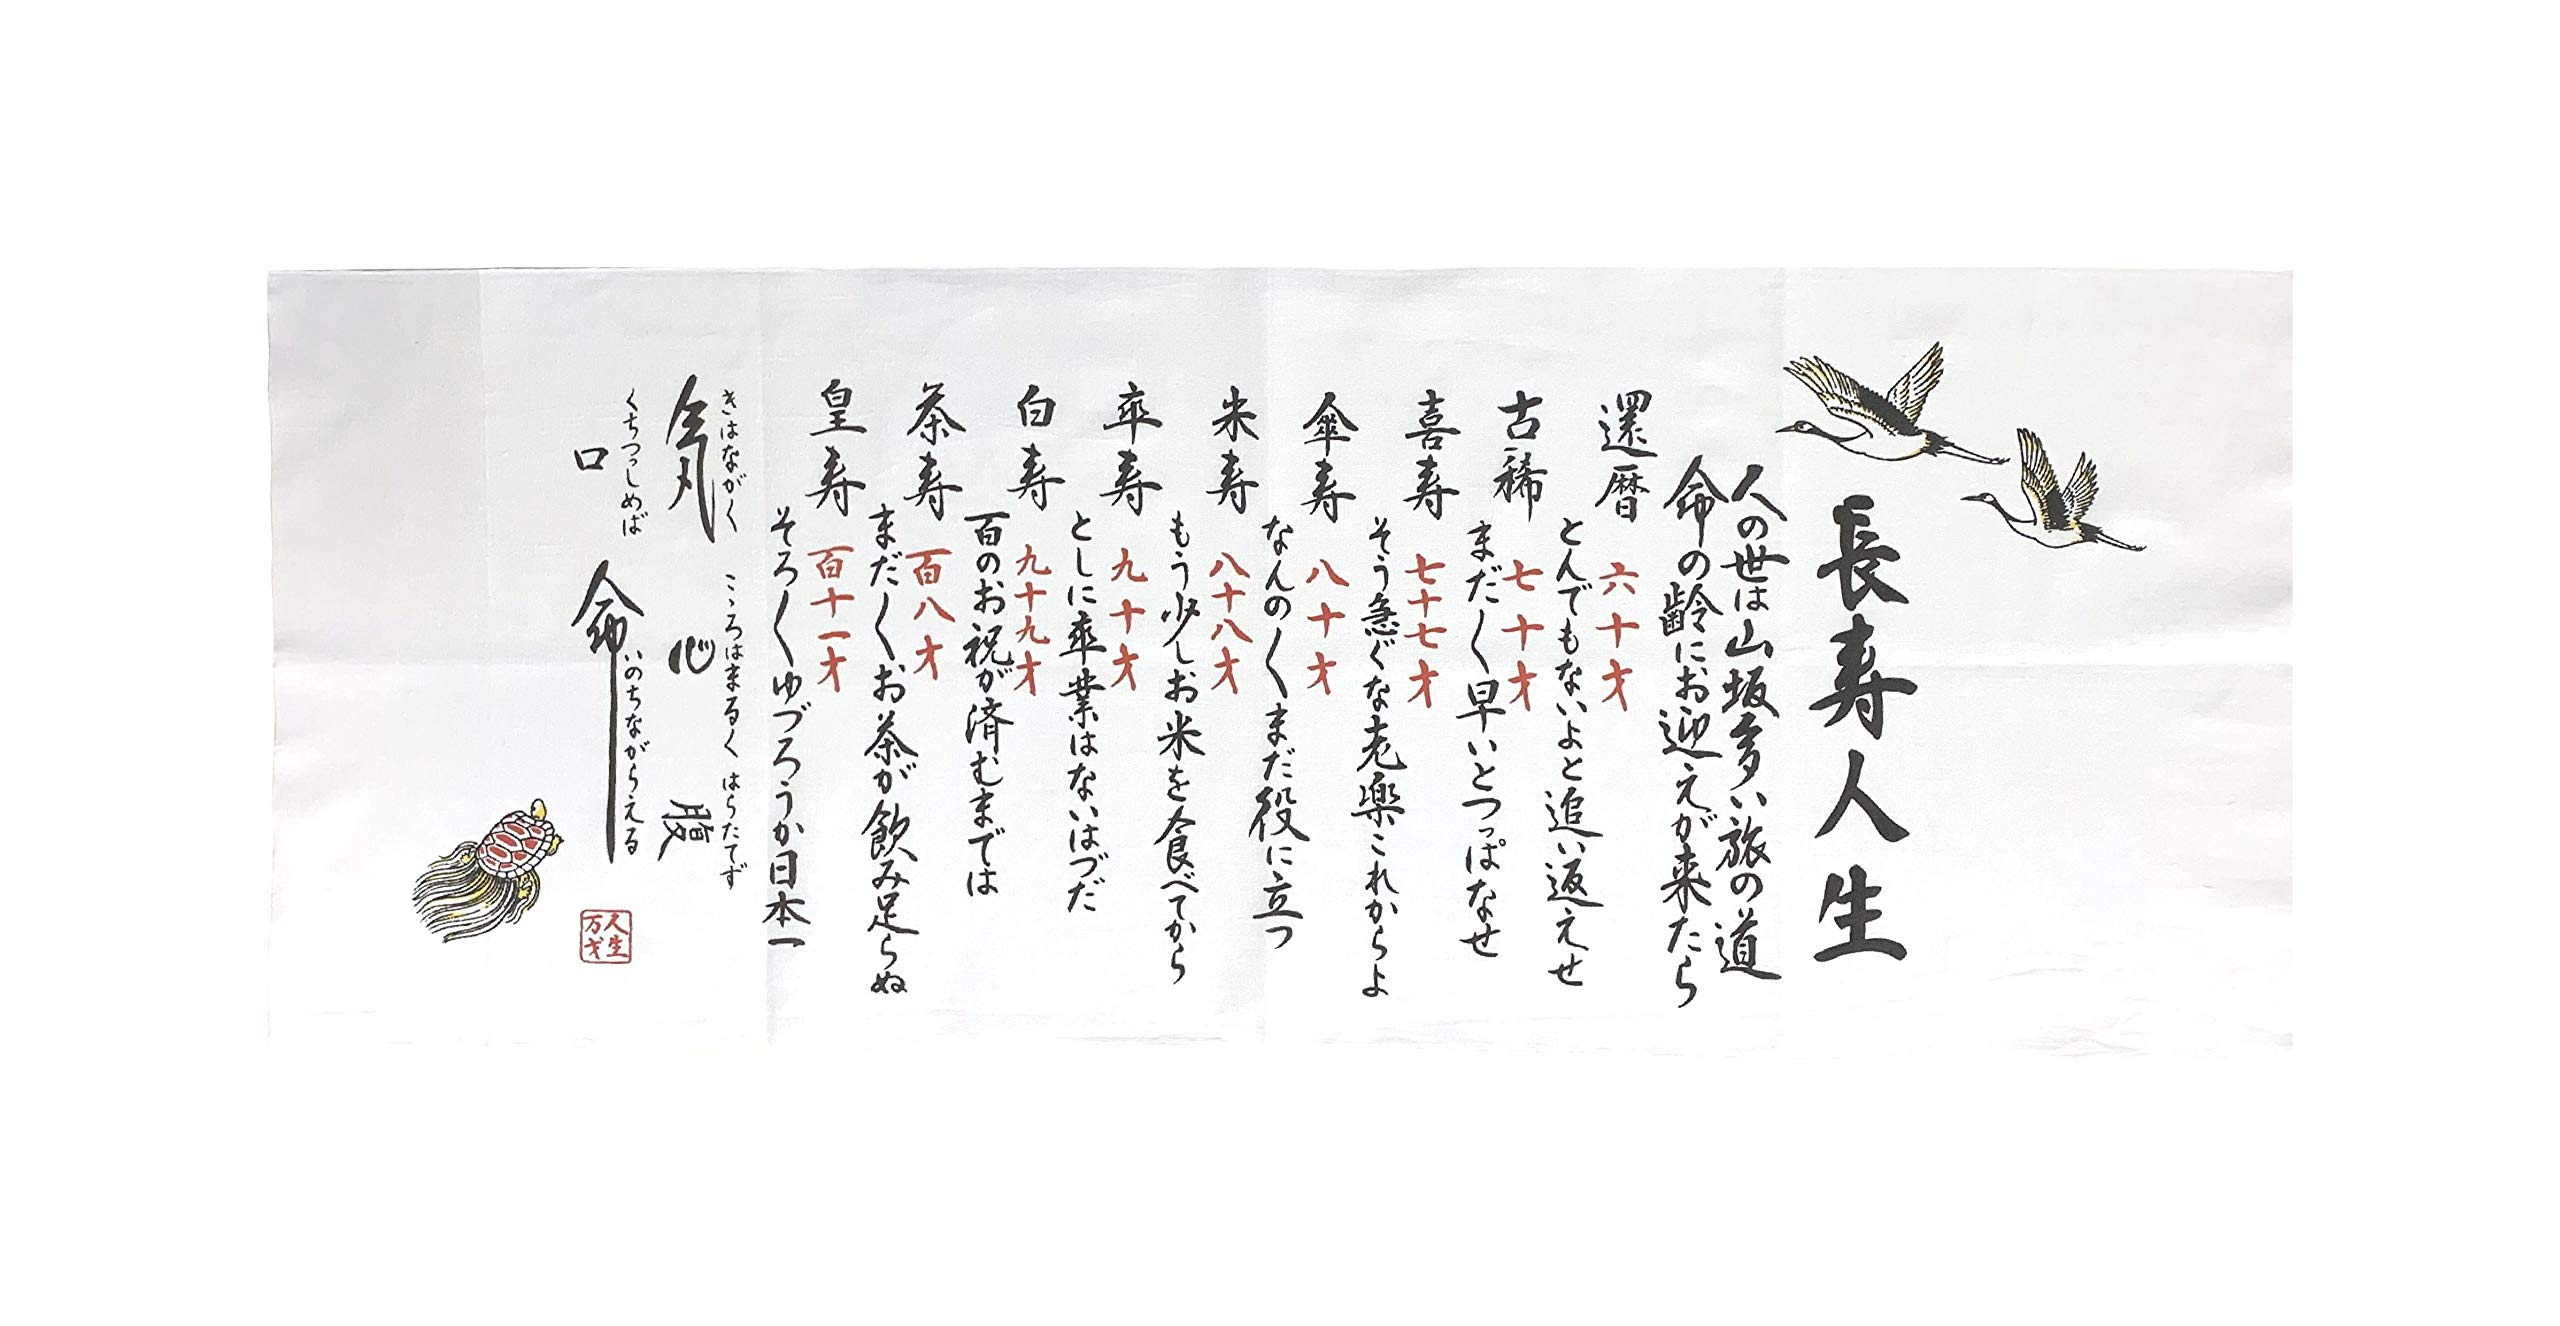 長寿人生
人の世は山坂多い旅の道
命の齢にお迎えが来たら
還暦 六十才
とんでもないよと追い返えせ
古稀 七十才
まだ〱早いとつっぱなせ
喜寿 七十七才
そう急ぐな老楽これからよ
傘寿 八十才
なんの〱まだ役に立つ
米寿 八十八才
もう少しお米を食べてから
卒寿 九十才
としに卒業はないはづだ
白寿 九十九才
百のお祝が済むまでは
茶寿 百八才
まだ〱お茶が飲み足らぬ
皇寿 百十一才
そろ〱ゆづろうか日本一
きはながく こゝろはまるく はらたてず
気 心 腹
くちつつしめば いのちながらえる
口 命
人生
万才